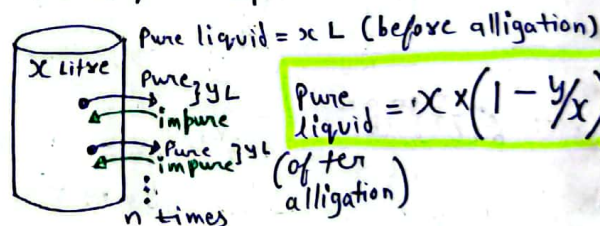 Pure liquid = x L (before alligation)
X Litre
Pure } y L
impure
Pure } y L
impure
n times
Pure liquid = x × (1 - y/x)
(of ter alligation)